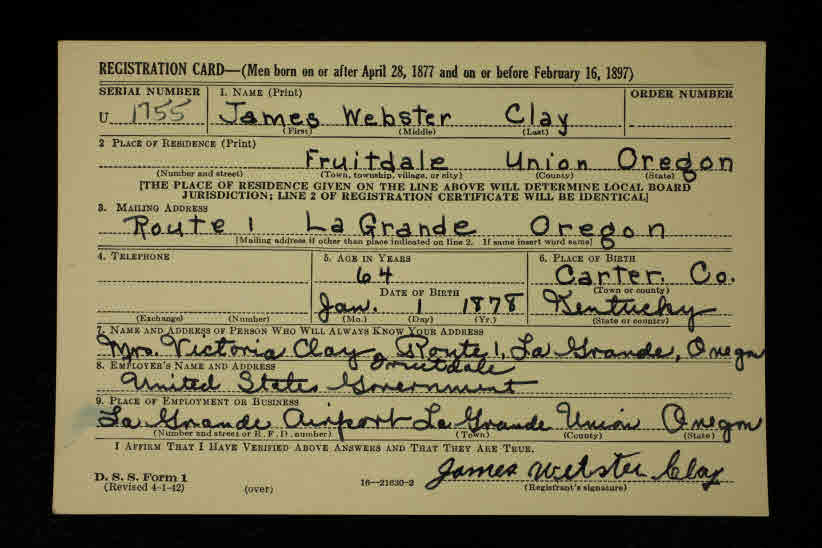 REGISTRATION CARD—(Men born on or after April 28, 1877 and on or before February 16, 1897)
SERIAL NUMBER 1. NAME (Print) ORDER NUMBER
U 1755 James Webster Clay
(First) (Middle) (Last)
2 PLACE OF RESIDENCE (Print)
Fruitdale Union Oregon
(Number and street) (Town, township, village, or city) (County) (State)
[THE PLACE OF RESIDENCE GIVEN ON THE LINE ABOVE WILL DETERMINE LOCAL BOARD
JURISDICTION; LINE 2 OF REGISTRATION CERTIFICATE WILL BE IDENTICAL]
3. MAILING ADDRESS
Route 1 La Grande Oregon
[Mailing address if other than place indicated on line 2. If same insert word same]
4. TELEPHONE 5. AGE IN YEARS 6. PLACE OF BIRTH
64 Carter Co.
DATE OF BIRTH (Town or county)
Jan. 1 1878 Kentucky
(Exchange) (Number) (Mo.) (Day) (Yr.) (State or country)
7. NAME AND ADDRESS OF PERSON WHO WILL ALWAYS KNOW YOUR ADDRESS
Mrs. Victoria Clay Route 1, La Grande, Oregon
8. EMPLOYER'S NAME AND ADDRESS Fruitdale
United States Government
9. PLACE OF EMPLOYMENT OR BUSINESS
La Grande Airport La Grande Union Oregon
(Number and street or R. F. D. number) (Town) (County) (State)
I AFFIRM THAT I HAVE VERIFIED ABOVE ANSWERS AND THAT THEY ARE TRUE.
James Webster Clay
D. S. S. Form 1
(Revised 4-1-42) (over) 16—21630-2 (Registrant's signature)